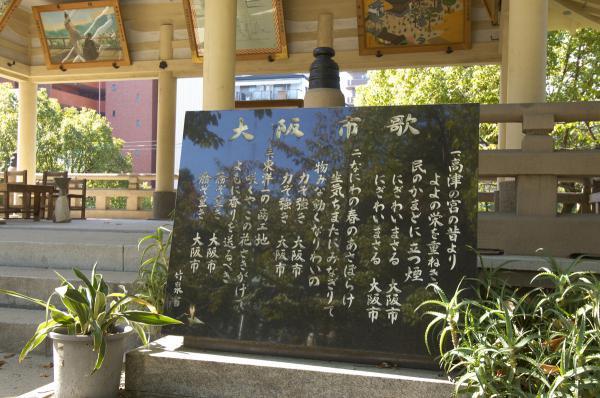 大阪市歌
一高津の宮の昔より
よよの栄を重ねきて
民のかまどに立つ煙
にぎわいまさる 大阪市
にぎわいまさる 大阪市
二なにわの春のあさぼらけ
生気ちまたにみなぎりて
物みな動くなりわいの
力ぞ強き 大阪市
力ぞ強き 大阪市
三東洋一の商工地
咲くやこの花さきがけて
よもに香りを送るべき
務ぞ重き 大阪市
務ぞ重き 大阪市
竹泉書